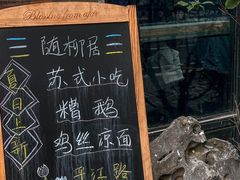 Blessing from afar
随柳居
夏日上新
苏式小吃
糟鹅
鸡丝凉面
平江路